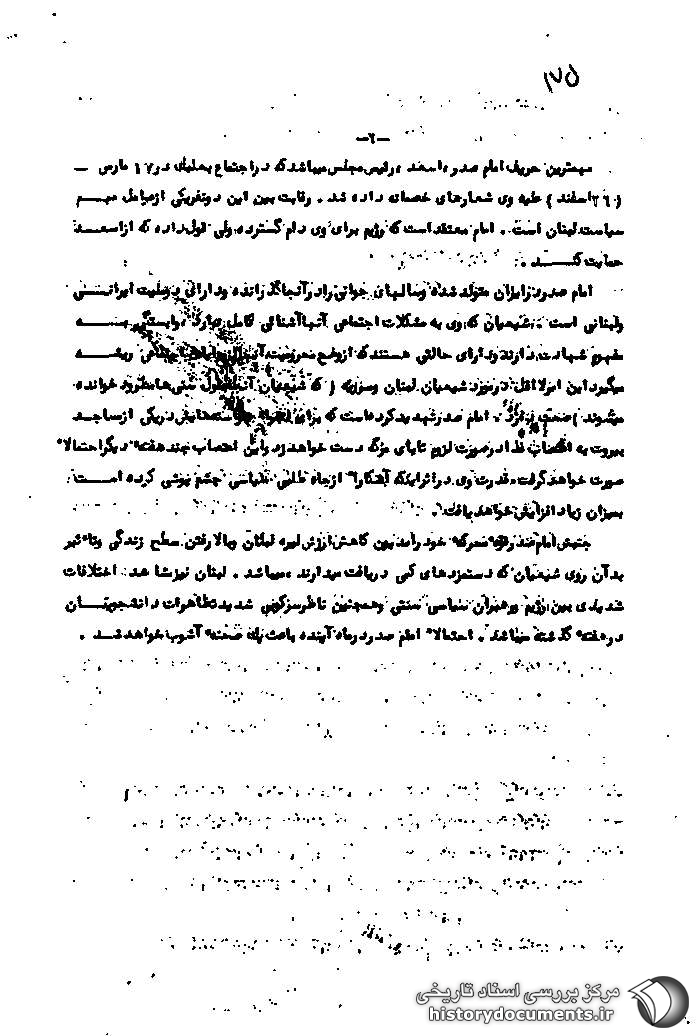 ۱۷۵
-۲-
مهمترین حریف امام صدر، اسعد، رئیس مجلس میباشد که در اجتماع بعلبک در ۱۷ مارس —
(۲۶ اسفند) علیه وی شعارهای خصمانه داده شد. رقابت بین این دو نفر یکی از عوامل مهم
سیاست لبنان است. امام معتقد است که رژیم برای وی دام گسترده ولی قول داده که از اسعد
حمایت کند.
امام صدر در ایران متولد شده و سالهای جوانی را در آنجا گذرانده و دارای دو ملیت ایرانی
ولبنانی است. شیعیان که وی به مشکلات اجتماعی آنها آشنائی کامل دارد، وابستگی به
مفهوم شهادت دارند و دارای حالتی هستند که از وضع محرومیت ریشه
میگیرد این امر لااقل در مورد شیعیان لبنان و سوریه (که شیعیان آنها خوانده
میشوند) صدق امام صدر تهدید کرده است که برای در یکی از مساجد
بیروت به اعتصاب غذا در صورت لزوم تا پای مرگ دست خواهد زد و این اعتصاب چند هفته دیگر احتمالاً
صورت خواهد گرفت، قدرت وی در اثر اینکه آشکارا از جاه طلبی سیاسی چشم پوشی کرده است
بمیزان زیاد افزایش خواهد یافت.
جنبش امام صدر محرک خود را مدیون کاهش ارزش لیره لبنان و بالا رفتن سطح زندگی و تأثیر
بد آن روی شیعیان که دستمزدهای کمی دریافت میدارند، میباشد. لبنان نیز شاهد اختلافات
شدیدی بین رژیم و رهبران سیاسی سنتی و همچنین ناظر سرکوبی شدید تظاهرات دانشجویان
در هفته گذشته میباشد. احتمالاً امام صدر در ماه آینده باعث یک صحنه آشوب خواهد شد.
مرکز بررسی اسناد تاریخی
historydocuments.ir